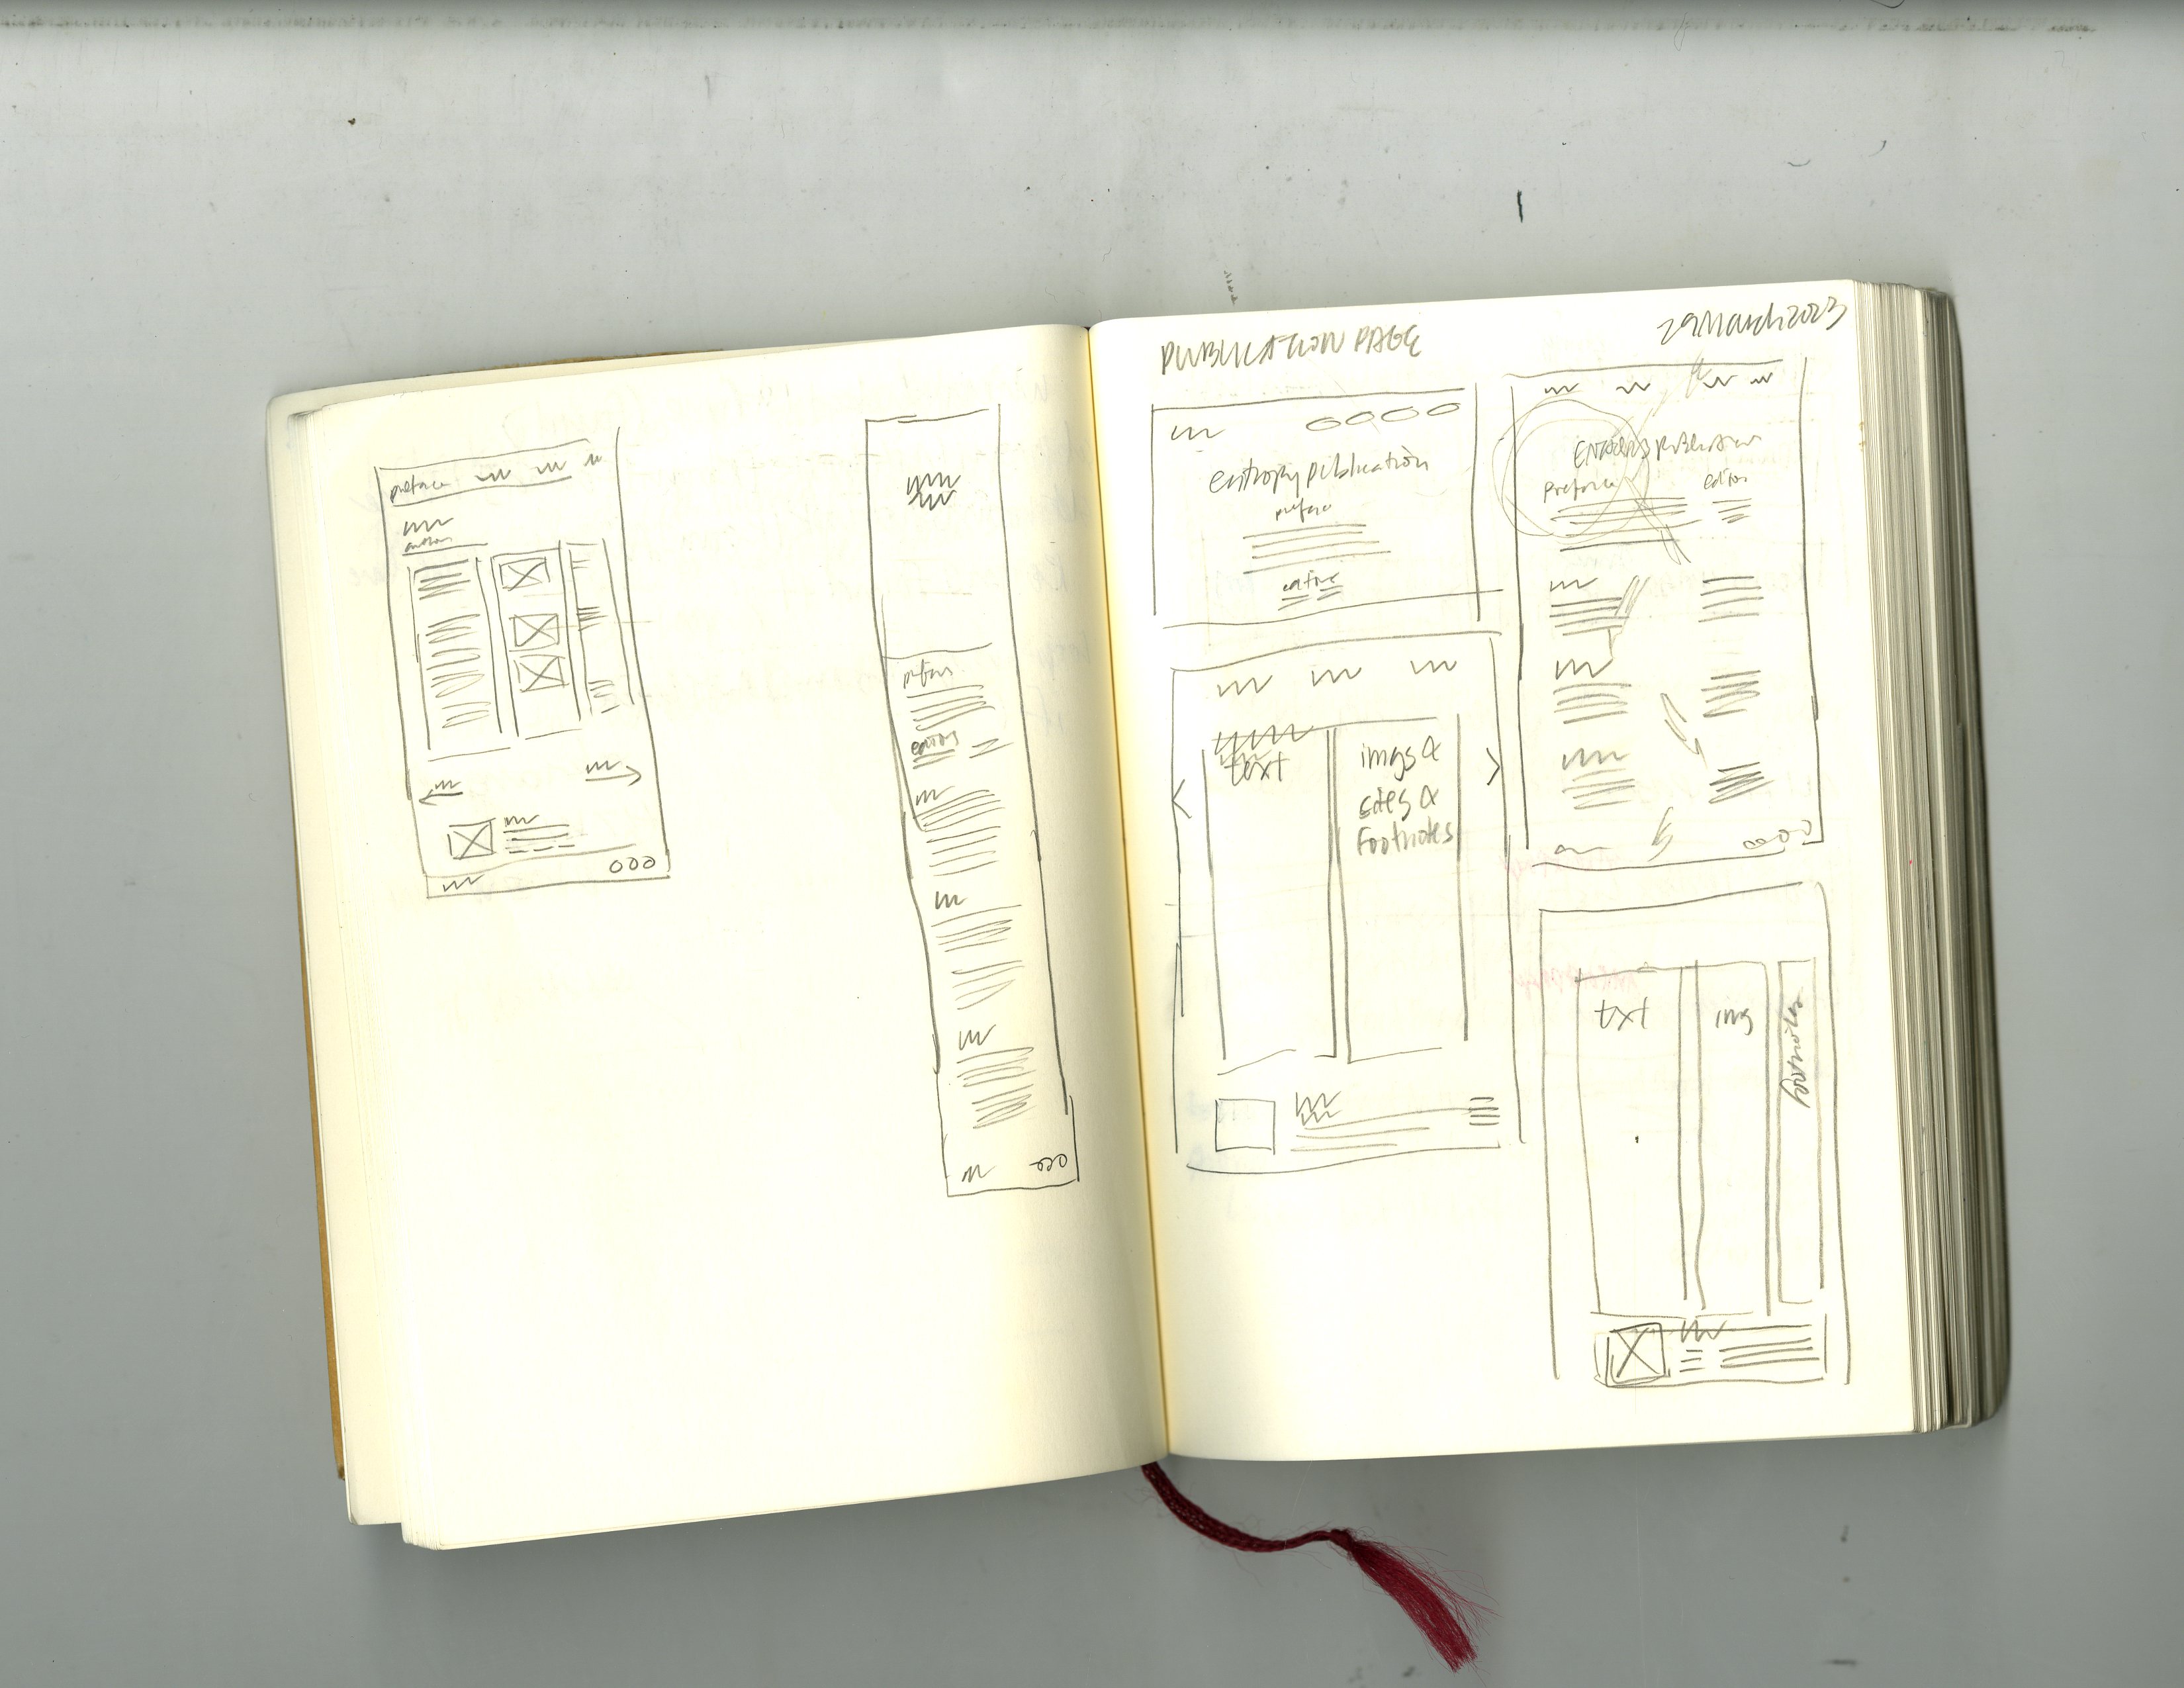 preface
author
prefars
editors
PUBLICATION PAGE
29 March 2023
entropy publication
preface
text
imgs &
sites &
Footnotes
preface
editors
txt
img
footnotes